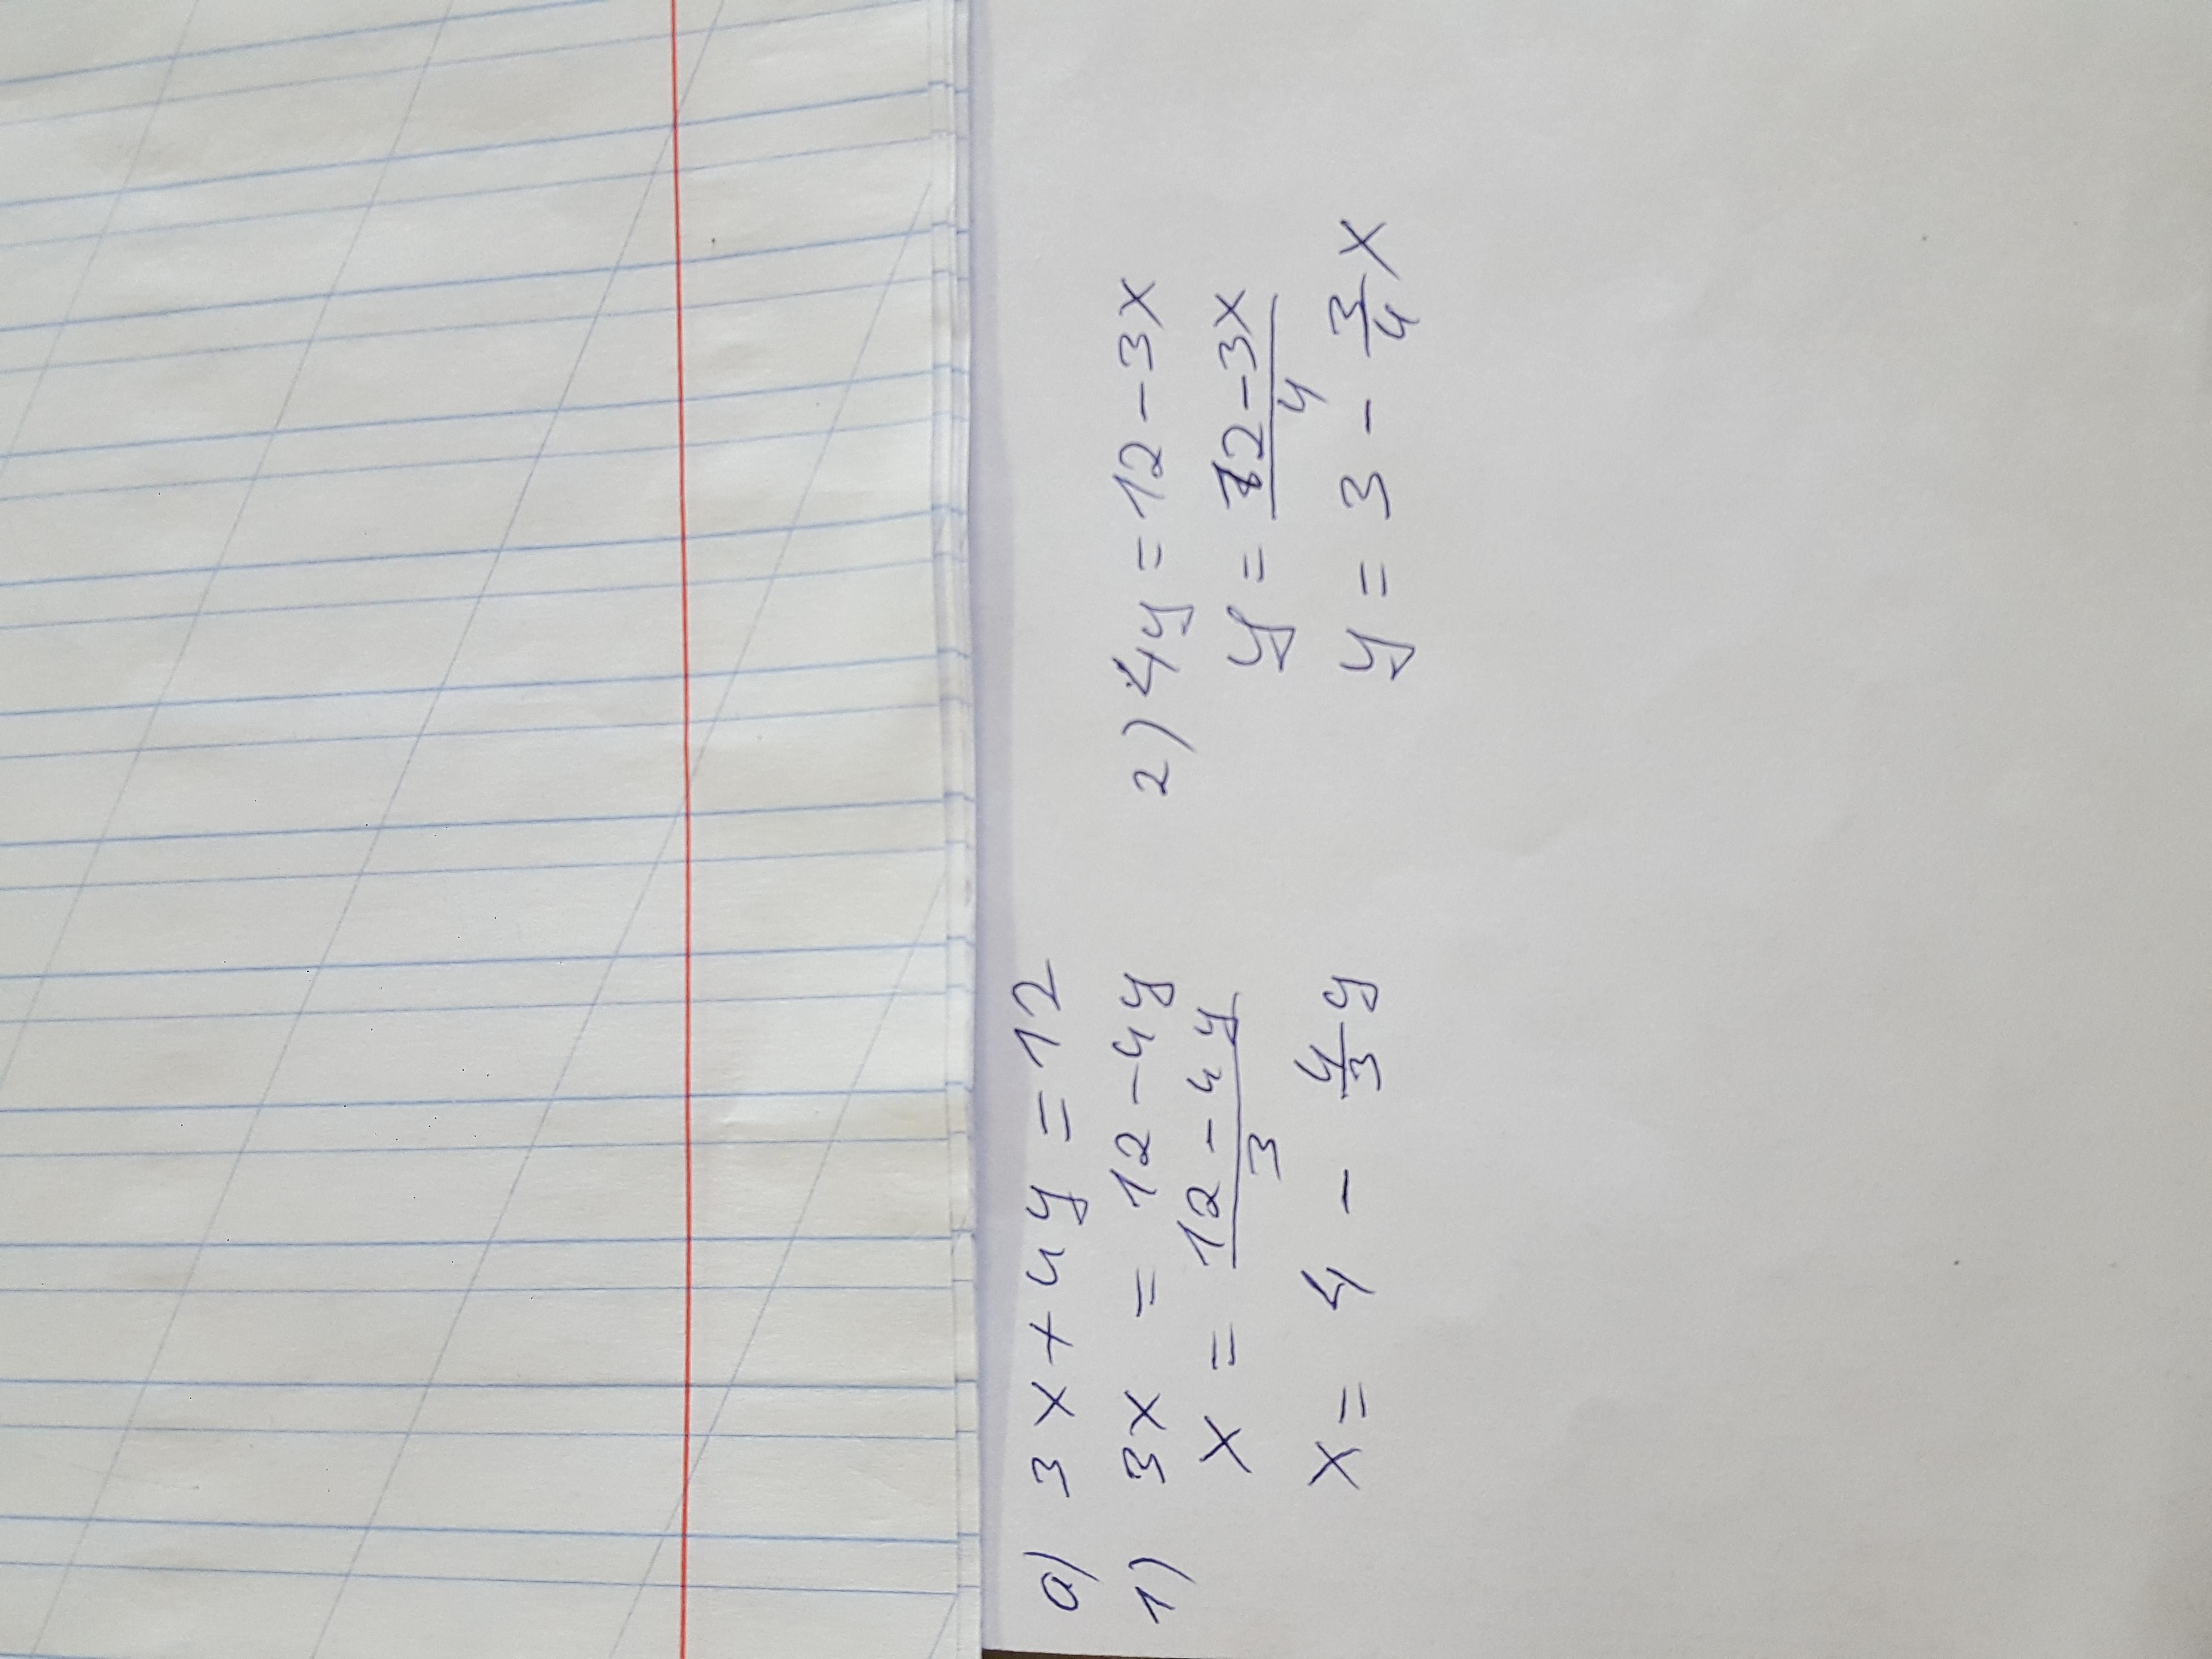 a) 3x+4y=12
1) 3x = 12-4y
x = \frac{12-4y}{3}
x= 4 - \frac{4}{3}y
2) 4y=12-3x
y = \frac{12-3x}{4}
y = 3 - \frac{3}{4}x